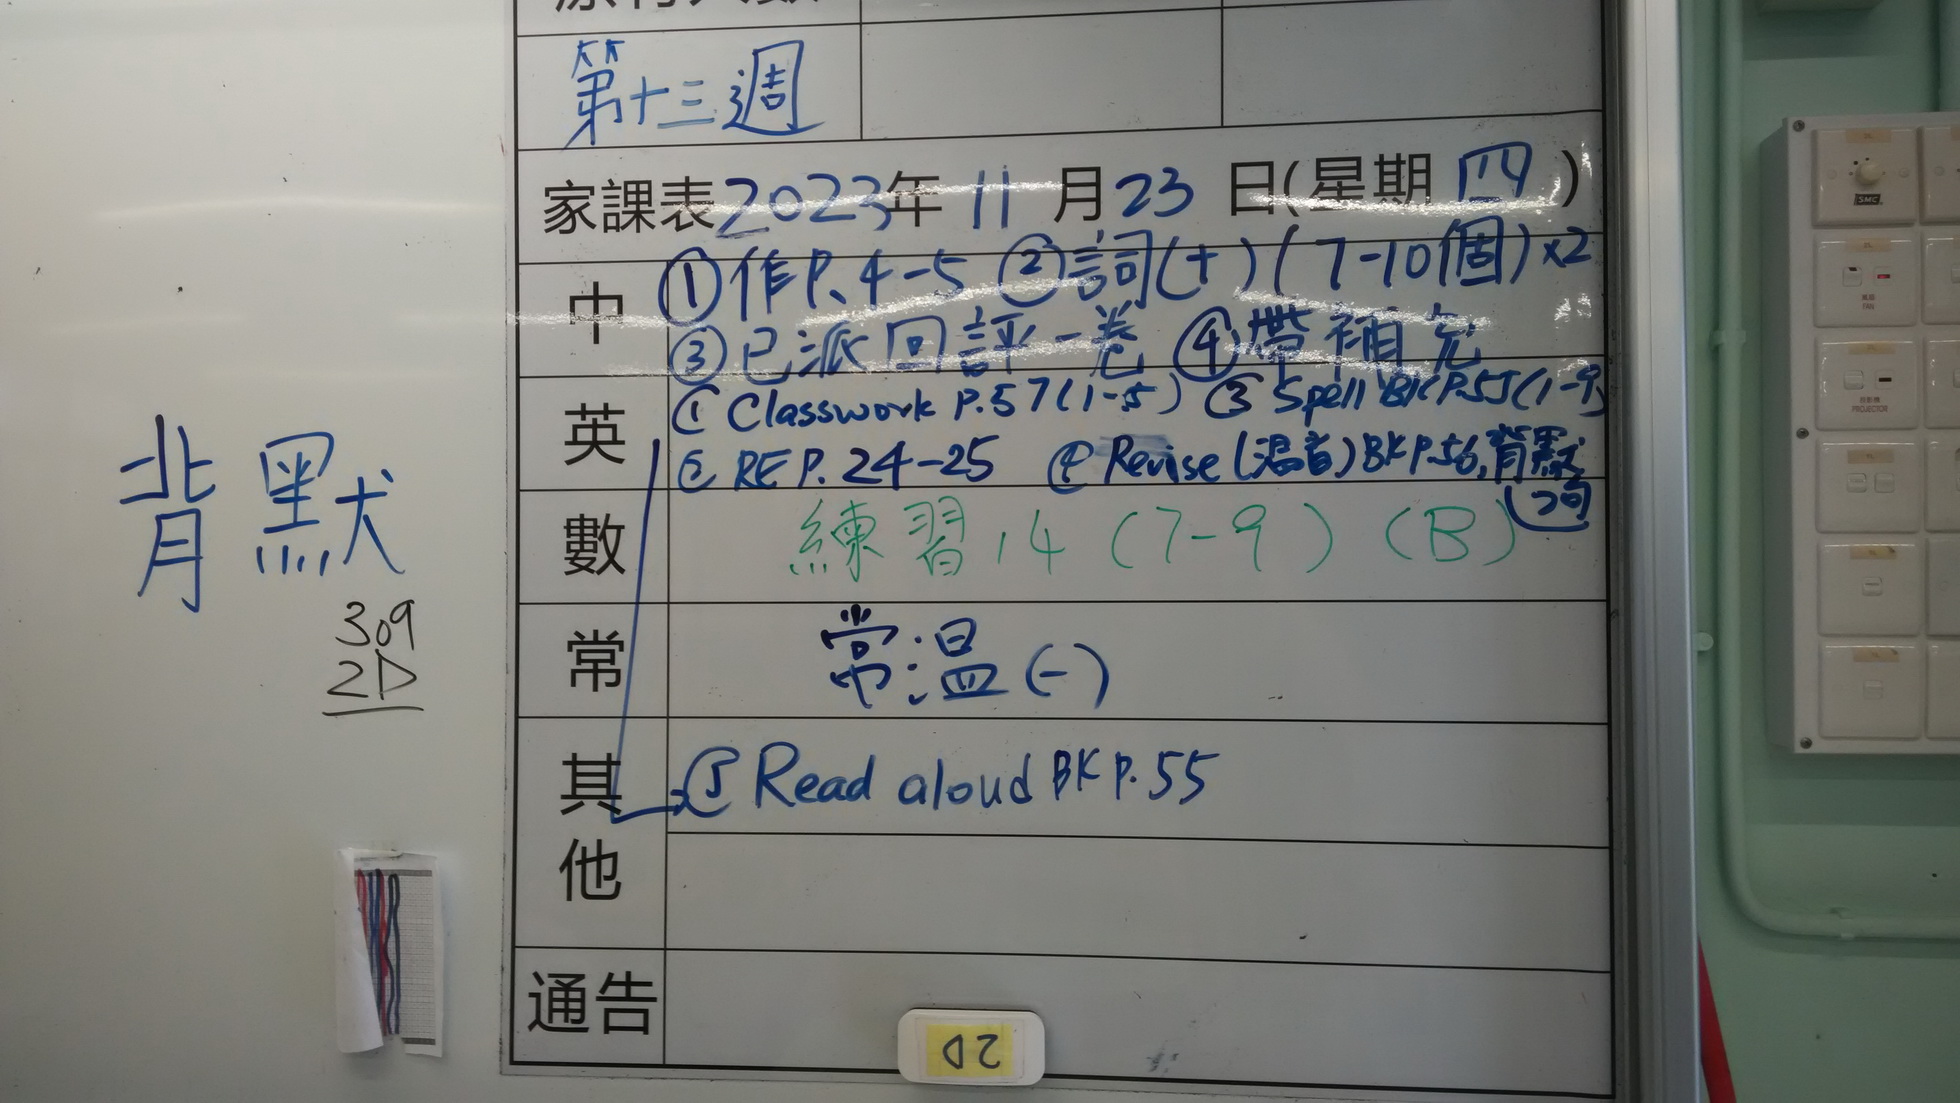 第十三週
家課表2023年11月23日(星期四)
中
①作P.4-5 ②詞(十)(7-10個)×2
③已派回評一卷 ④帶補充
英
① Classwork P.57(1-5) ③ Spell BK P.55(1-9)
② RE P.24-25 ④ Revise(温音)BK P.56,背默
2句
數
練習14(7-9)(B)
常
常温(一)
其他
⑤ Read aloud BK P.55
通告
背默
309
2D
2D
SMC
FAN
PROJECTOR